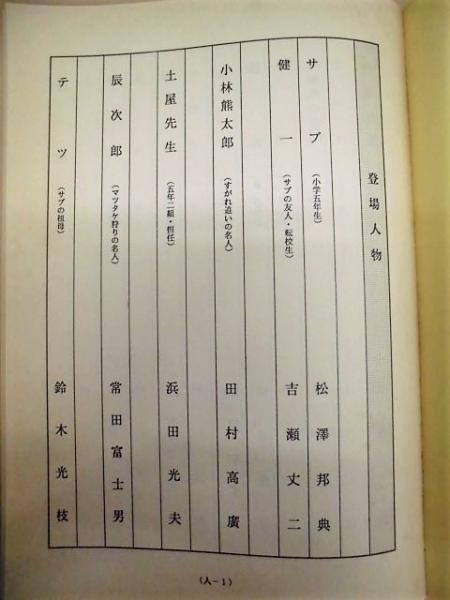 登場人物
サブ（小学五年生）　松澤邦典
健一（サブの友人・転校生）　吉瀬丈二
小林熊太郎（すがれ追いの名人）　田村高廣
土屋先生（五年二組・担任）　浜田光夫
辰次郎（マツタケ狩りの名人）　常田富士男
テツ（サブの祖母）　鈴木光枝
（人－1）